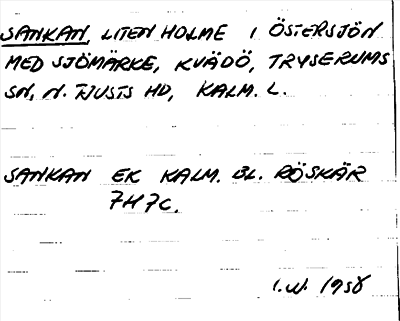 SANKAN, LITEN HOLME I ÖSTERSJÖN
MED SJÖMÄRKE, KVÄDÖ, TRYSERUMS
SN, N. TJUSTS HD, KALM. L.
SANKAN EK KALM. BL. RÖSKÄR
7H7C.
I.W. 1958